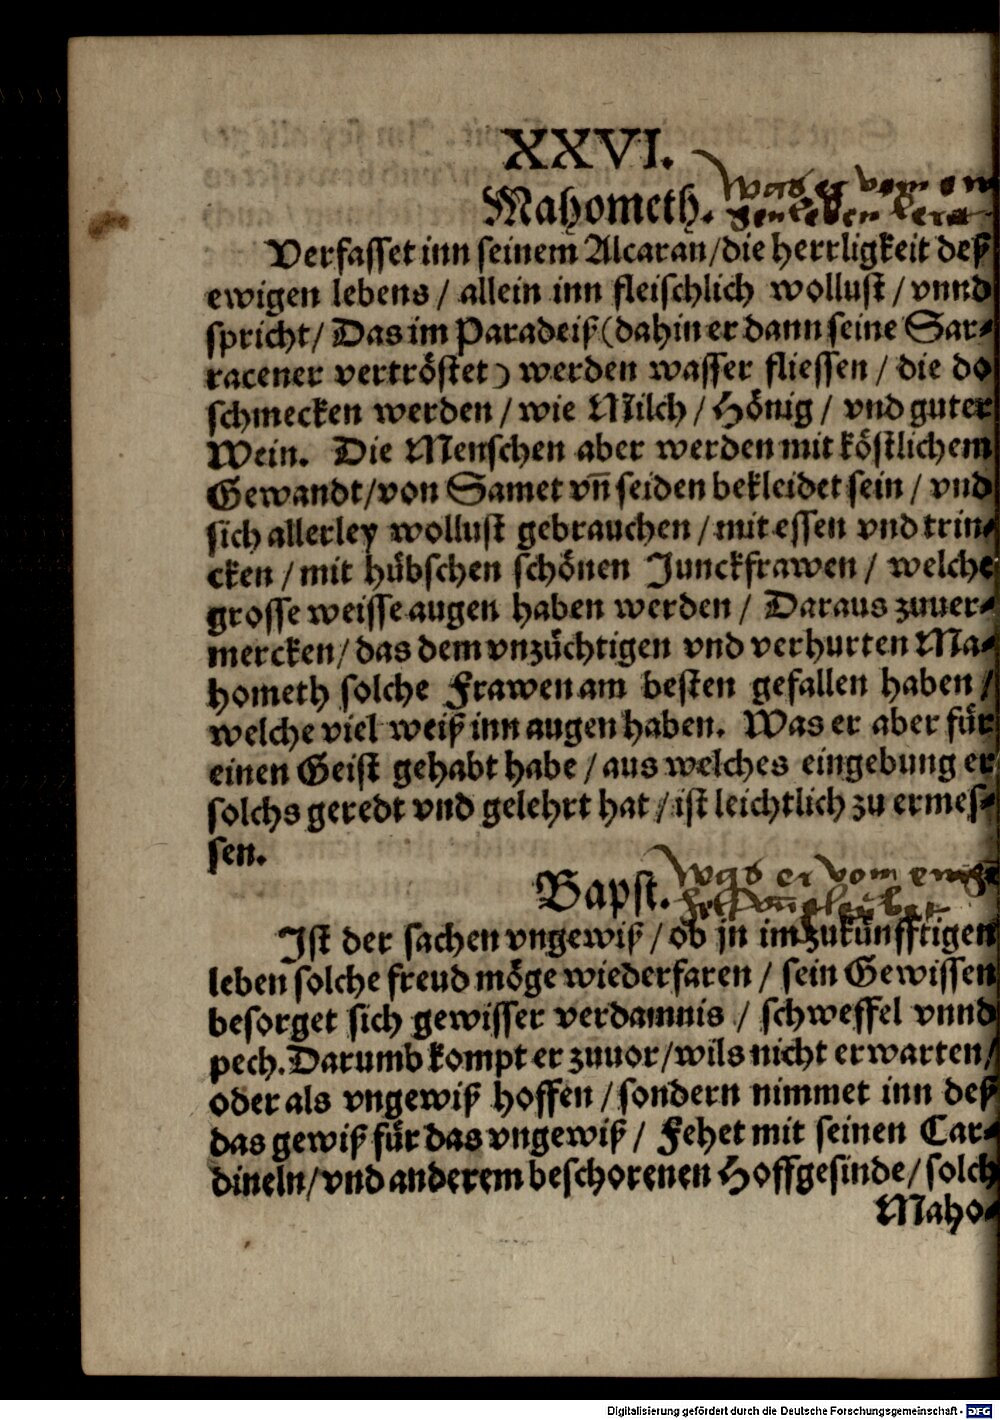 XXVI.
Mahometh. Was er vom
leben
Verfasset inn seinem Alcaran/die herrligkeit deß
ewigen lebens / allein inn fleischlich wollust / vnnd
spricht/ Das im Paradeiß (dahin er dann seine Sar-
racener vertröstet) werden wasser fliessen / die do
schmecken werden / wie Milch / Hönig / vnd guter
Wein. Die Menschen aber werden mit köstlichem
Gewandt/von Samet vñ seiden bekleidet sein / vnd
sich allerley wollust gebrauchen / mit essen vnd trin-
cken / mit hübschen schönen Junckfrawen / welche
grosse weisse augen haben werden / Daraus zuuer-
mercken/ das dem vnzüchtigen vnd verhurten Ma-
hometh solche Frawen am besten gefallen haben /
welche viel weiß inn augen haben. Was er aber für
einen Geist gehabt habe / aus welches eingebung er
solchs geredt vnd gelehrt hat / ist leichtlich zu ermes-
sen.
Bapst. Was er vom ewigē
Ist der sachen vngewiß / ob jn im zukünfftigen
leben solche freud möge wiederfaren / sein Gewissen
besorget sich gewisser verdamnis / schweffel vnnd
pech. Darumb kompt er zuuor/wils nicht erwarten/
oder als vngewiß hoffen / sondern nimmet inn deß
das gewiß für das vngewiß / Fehet mit seinen Car-
dineln/vnd anderem beschorenen Hoffgesinde/ solch
Maho-
Digitalisierung gefördert durch die Deutsche Forschungsgemeinschaft - DFG